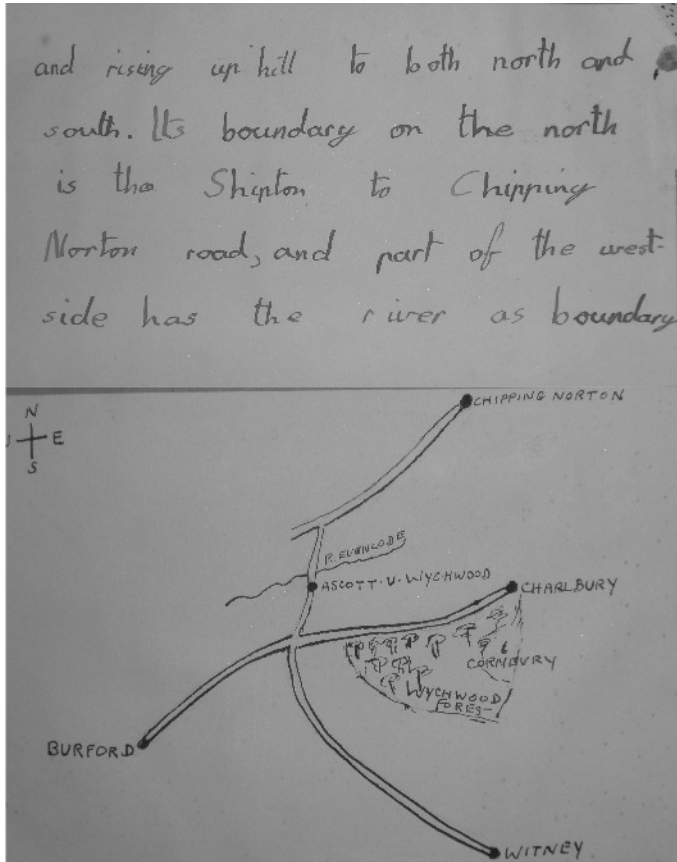 and rising up hill to both north and
south. Its boundary on the north
is the Shipton to Chipping
Norton road, and part of the west-
side has the river as boundary
CHIPPING NORTON
N
E
S
R. EVENLODE
ASCOTT-U-WYCHWOOD
CHARLBURY
CORNBURY
WYCHWOOD
FOREST
BURFORD
WITNEY